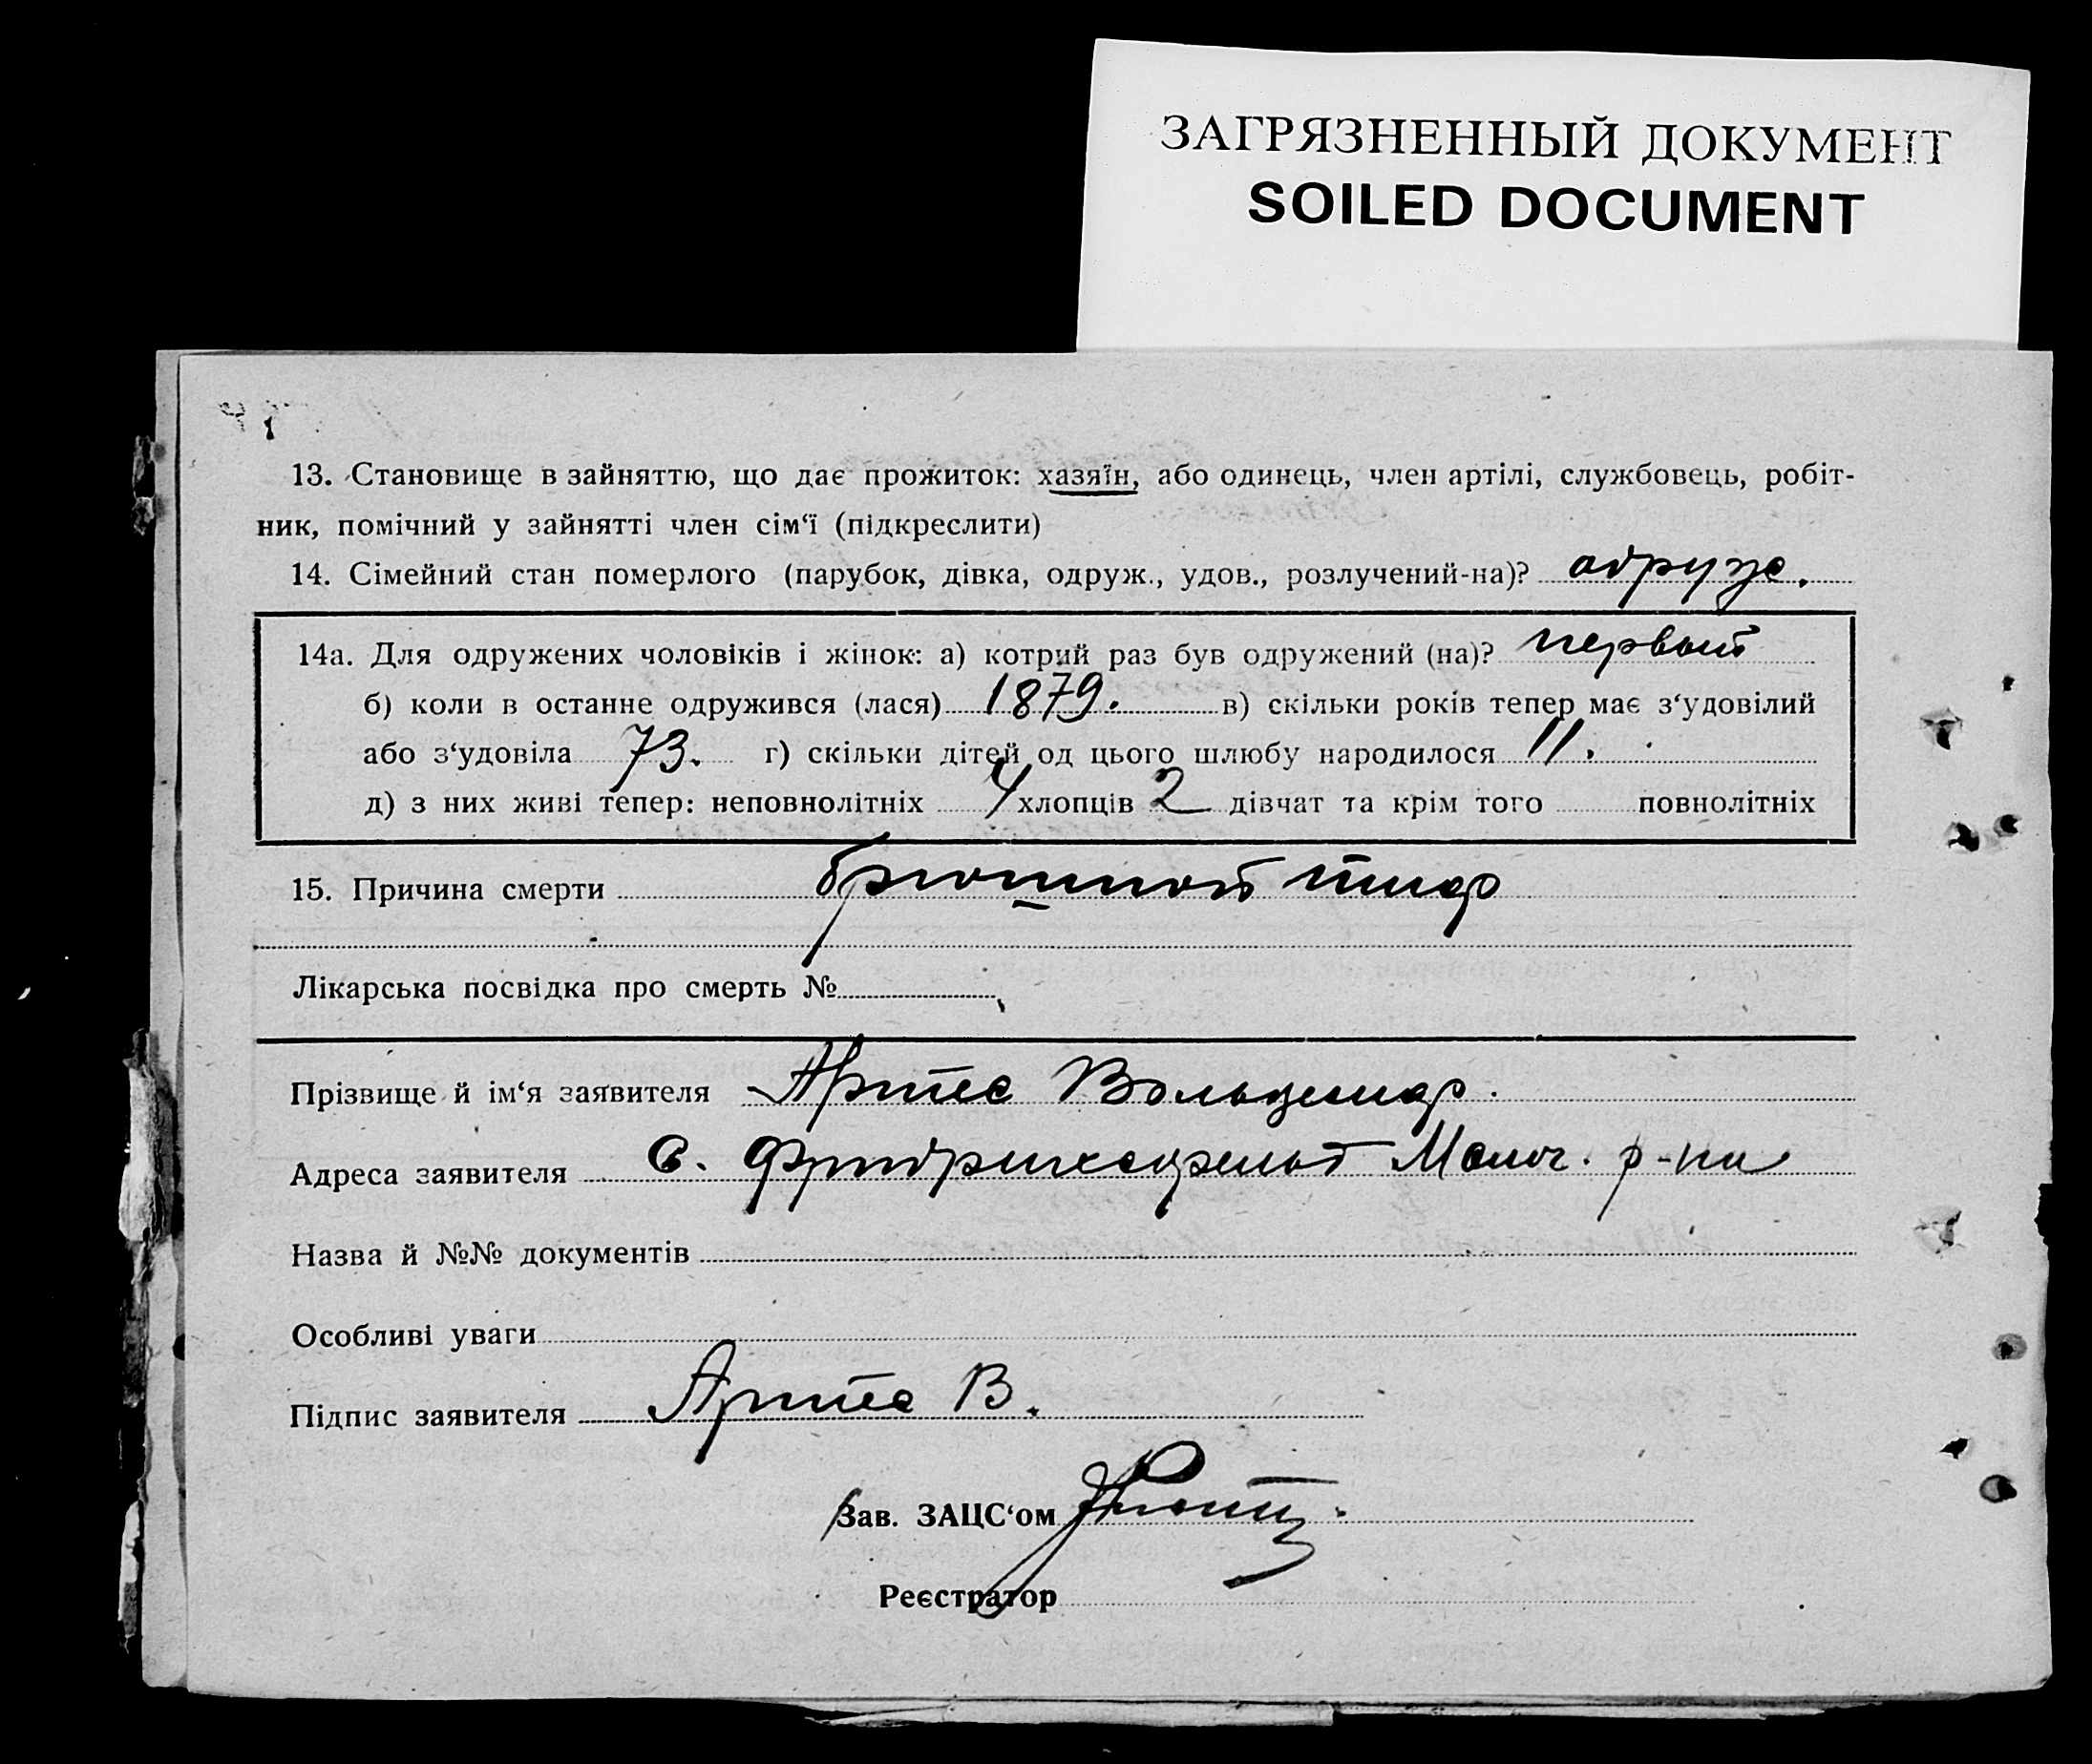 ЗАГРЯЗНЕННЫЙ ДОКУМЕНТ
SOILED DOCUMENT
13. Становище в зайняттю, що дає прожиток: хазяїн, або одинець, член артілі, службовець, робіт-
ник, помічний у зайнятті член сім‘ї (підкреслити)
14. Сімейний стан померлого (парубок, дівка, одруж., удов., розлучений-на)? одруж.
14а. Для одружених чоловіків і жінок: а) котрий раз був одружений (на)? первый
б) коли в останне одружився (лася) 1879. в) скільки років тепер має з‘удовілий
або з‘удовіла 73. г) скільки дітей од цього шлюбу народилося 11.
д) з них живі тепер: неповнолітніх 4 хлопців 2 дівчат та крім того повнолітніх
15. Причина смерти брюшной тиф
Лікарська посвідка про смерть №
Прізвище й ім‘я заявителя Артес Вольдемар.
Адреса заявителя с. Фридрихсфельд Молоч. р-на
Назва й №№ документів
Особливі уваги
Підпис заявителя Артес В.
Зав. ЗАЦС‘ом
Реєстратор